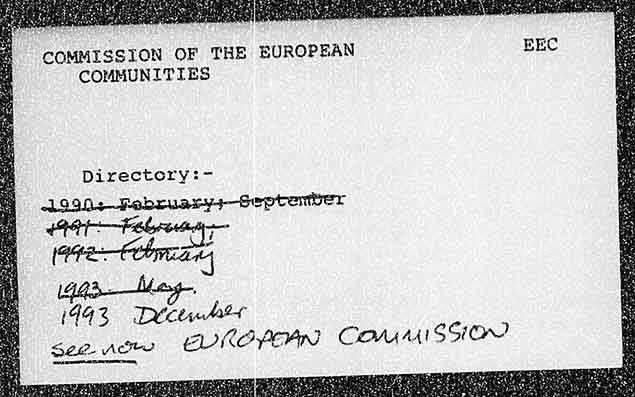 COMMISSION OF THE EUROPEAN EEC
COMMUNITIES
Directory:-
1990: February; September
1991: February,
1992: February
1993. May.
1993 December
see now EUROPEAN COMMISSION